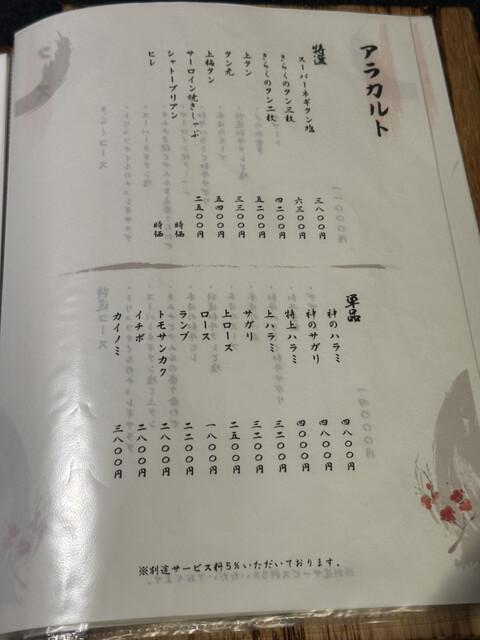 アラカルト
特選
スーパーネギタン塩 三八〇〇円
きらくのタン三枚 六三〇〇円
きらくのタン二枚 四二〇〇円
上タン 五二〇〇円
タン元 三三〇〇円
上梅タン 五四〇〇円
サーロイン焼きしゃぶ 二五〇〇円
シャトーブリアン 時価
ヒレ 時価
単品
神のハラミ 四八〇〇円
神のサガリ 四八〇〇円
特上ハラミ 四〇〇〇円
上ハラミ 三二〇〇円
サガリ 三二〇〇円
上ロース 二五〇〇円
ロース 一八〇〇円
ランプ 二二〇〇円
トモサンカク 二八〇〇円
イチボ 二八〇〇円
カイノミ 三八〇〇円
※別途サービス料5%いただいております。